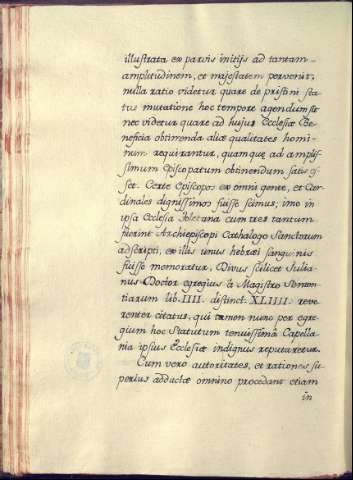 illustrata ex parvis initijs ad tantam
amplitudinem, et majestatem pervenit;
nulla ratio videtur quare de pristini sta
tus mutatione hoc tempore agendum sit
nec videtur quare ad hujus Ecclesiæ Be-
neficia obtinenda aliæ qualitates homi-
num requirantur, quamquæ ad amplis-
simum Episcopatum obtinendum satis es
set. Certe Episcopos ex omni gente, et Car-
dinales dignissimos fuisse scimus; imo in
ipsa Ecclesia Toletana cum tres tantum
fuerint Archiepiscopi Cathalogo Sanctorum
adscripti, ex illis unus hebræi sanguinis
fuisse memoratur, Divus scilicet Julia-
nus Doctor egregius à Magistro Senten-
tiarum lib. IIII. distinct. XLIIII. reve
renter citatus, qui tamen nunc per egre-
gium hoc Statutum tenuissima Capella-
nia ipsius Ecclesiæ indignus reputaretur.
Cum vero autoritates, et rationes su-
perius adductæ omnino procedant etiam
in